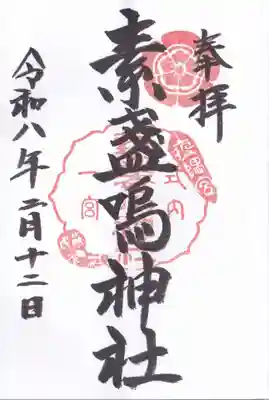 奉拝
素盞嗚神社
令和八年二月十二日